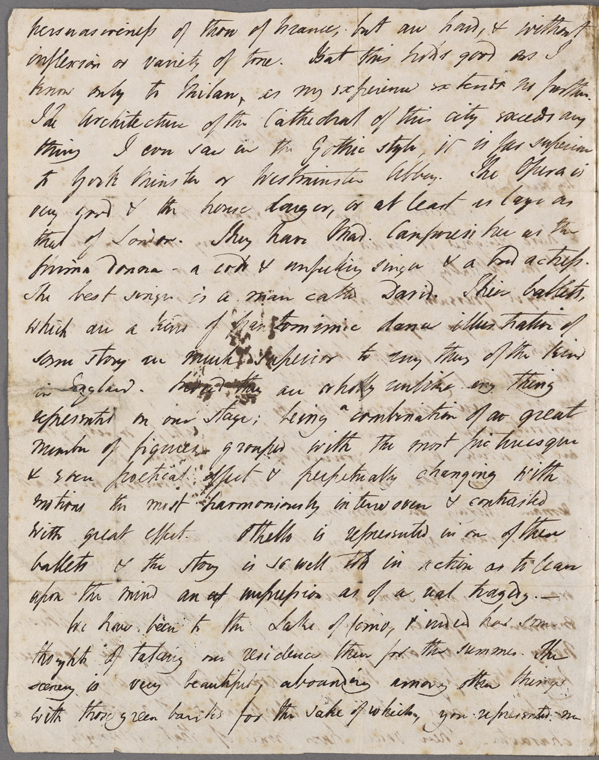 persuasiveness of those of France; but are hard, & without
inflexion or variety of tone. But this holds good as I
know only to Milan, as my experience extends no further.
The Architecture of the Cathedral of this city exceeds any
thing I ever saw in the Gothic style it is far superior
to York Minster or Westminster Abbey. The Opera is
very good & the house larger, or at least as large as
that of London. They have Mad. Camporese here as the
prima donna – a cold & unfeeling singer & a bad actress.
The best singer is a man called David. Their ballets,
which are a kind of pantomimic dance illustrative of
some story are much superior to any thing of the kind
in England. are wholly unlike any thing
represented on our stage; being a combination of a great
number of figures grouped with the most picturesque
& even poetical effect & perpetually changing with
motions the most harmoniously interwoven & contrasted
with great effect. Othello is represented in one of these
ballets & the story is so well told in action as to leave
upon the mind an impression as of a real tragedy. —
We have been to the Lake of Como, & indeed had some
thoughts of taking our residence there for the summer. The
scenery is very beautiful, abounding among other things
with those green banks for the sake of which you represented me